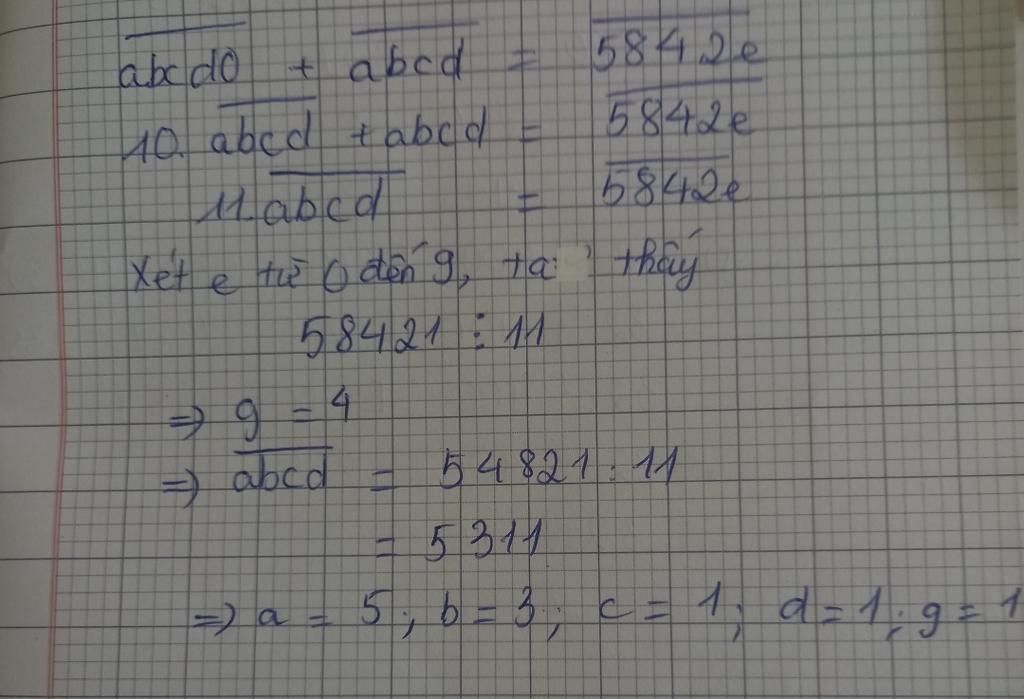 abcd0 + abcd = 5842e
10. abcd + abcd = 5842e
11.abcd = 5842e
Xét e từ 0 đến 9, ta thấy
58421 ⋮ 11
=> g = 4
=> abcd = 54821 : 11
= 5311
=> a = 5; b = 3; c = 1; d = 1; g = 1